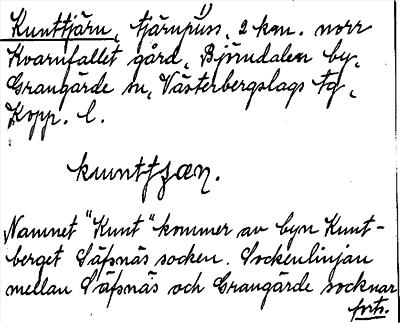 Kunttjärn, tjärnpuss, 2 km. norr
Kvarnfallet gård, Björndalen by,
Grangärde sn, Västerbergslags tg,
Kopp. l.
kunttjæɳ.
Namnet "Kunt" kommer av byn Kunt-
berget Säfsnäs socken. Sockenlinjan
mellan Säfsnäs och Grangärde socknar
forts.